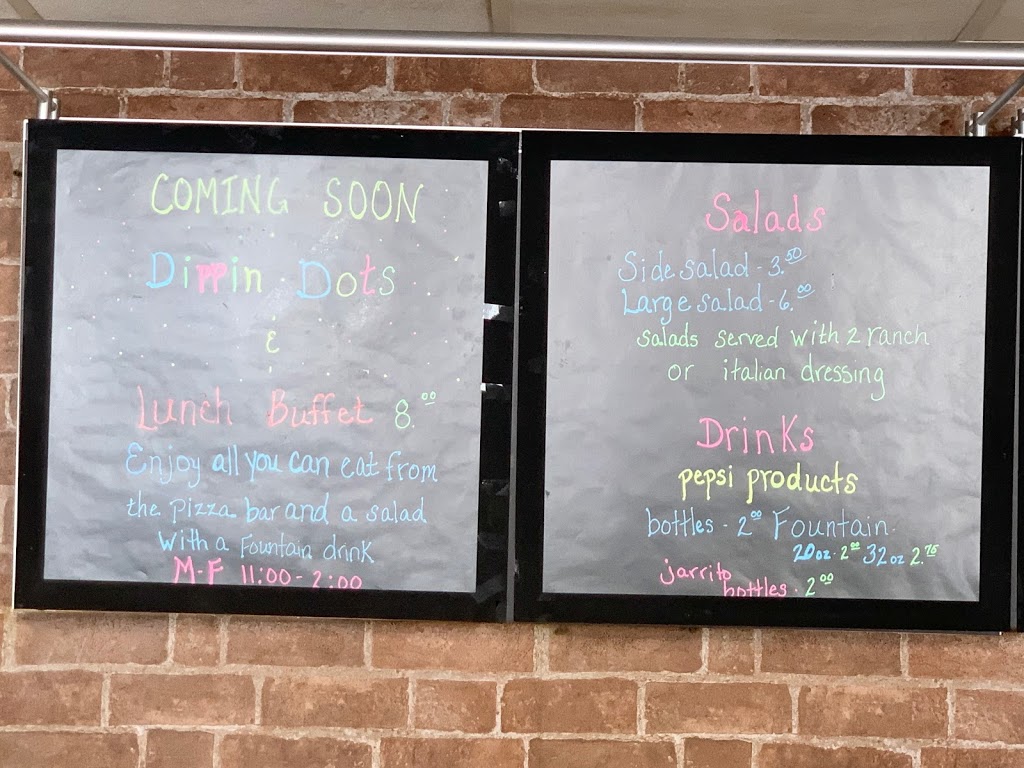 COMING SOON
Dippin Dots
&
Lunch Buffet 8.00
Enjoy all you can eat from
the pizza bar and a salad
with a Fountain drink
M-F 11:00-2:00
Salads
Side salad - 3.50
Large salad - 6.00
salads served with 2 ranch
or italian dressing
Drinks
pepsi products
bottles - 2.00 Fountain
20oz - 2.00 32oz 2.75
jarrito
bottles - 2.00